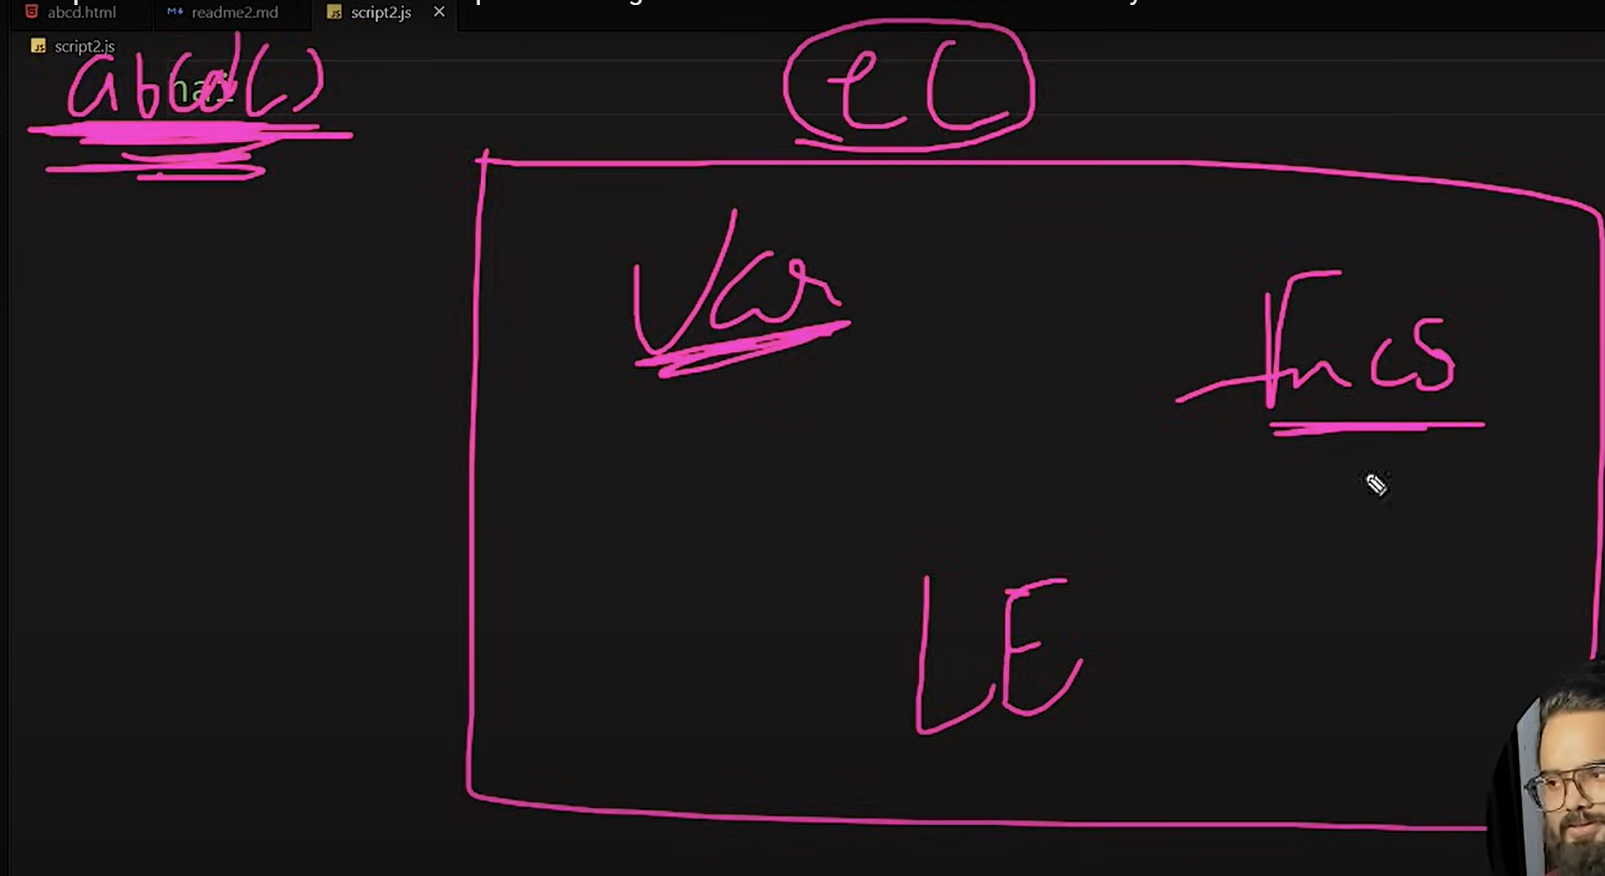 abcd.html readme2.md script2.js
script2.js
abcd()
eC
Var
Fncs
LE